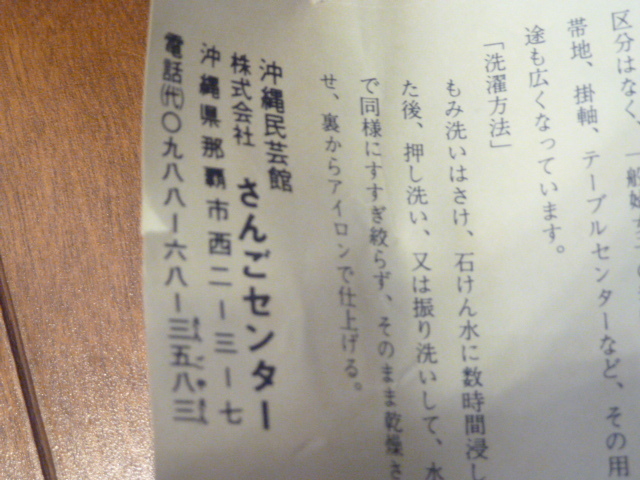 区分はなく、一般
帯地、掛軸、テーブルセンターなど、その用
途も広くなっています。
「洗濯方法」
もみ洗いはさけ、石けん水に数時間浸し
た後、押し洗い、又は振り洗いして、水
で同様にすすぎ絞らず、そのまま乾燥さ
せ、裏からアイロンで仕上げる。
沖縄民芸館
株式会社 さんごセンター
沖縄県那覇市西二ー三ー七
電話㈹〇九八八ー六八ー三五八三